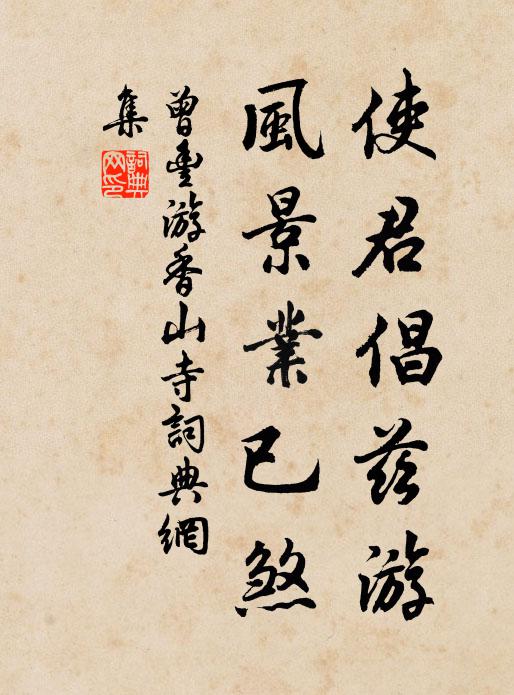 使君倡兹游
風景業已煞
曾豊游香山寺詞典網
集
詞典網印